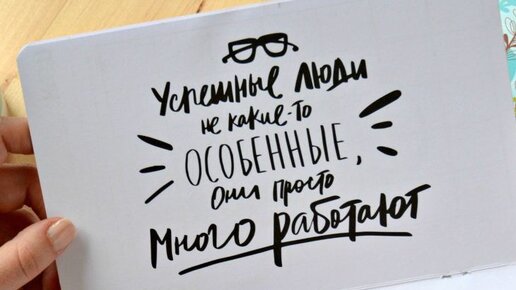 Успешные люди
не какие-то
ОСОБЕННЫЕ,
Они просто
Много работают